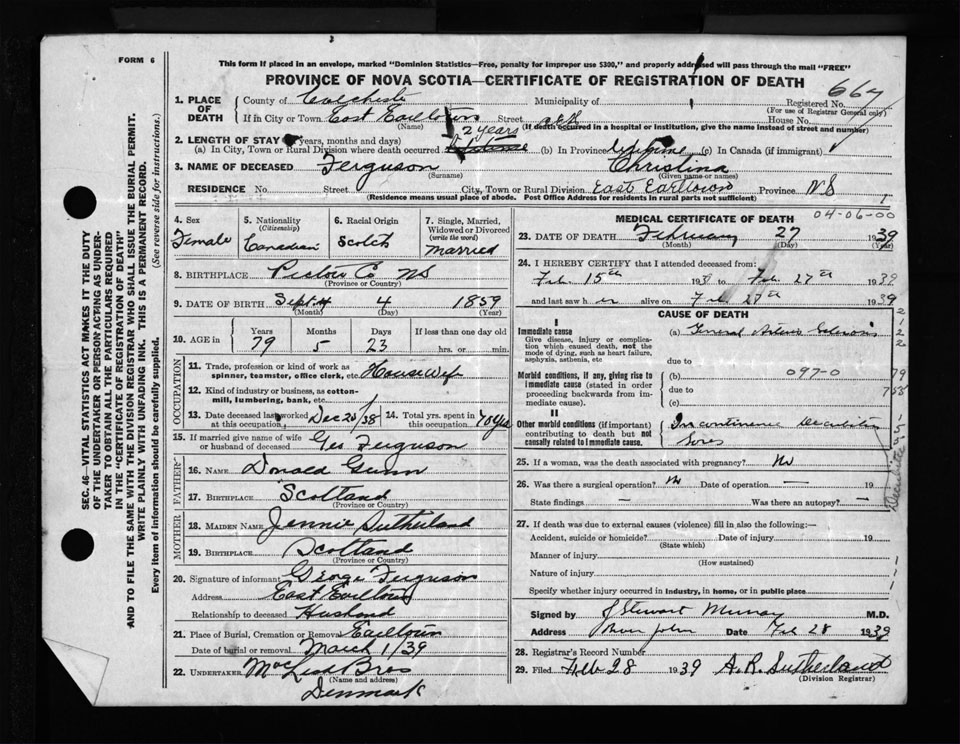 FORM 6
This form if placed in an envelope, marked "Dominion Statistics—Free, penalty for improper use $300," and properly addressed will pass through the mail "FREE"
PROVINCE OF NOVA SCOTIA—CERTIFICATE OF REGISTRATION OF DEATH
SEC. 46—VITAL STATISTICS ACT MAKES IT THE DUTY
OF THE UNDERTAKER OR PERSON ACTING AS UNDER-
TAKER TO OBTAIN ALL THE PARTICULARS REQUIRED
IN THE "CERTIFICATE OF REGISTRATION OF DEATH"
AND TO FILE THE SAME WITH THE DIVISION REGISTRAR WHO SHALL ISSUE THE BURIAL PERMIT.
WRITE PLAINLY WITH UNFADING INK. THIS IS A PERMANENT RECORD.
Every item of information should be carefully supplied. (See reverse side for instructions.)
667
1. PLACE OF DEATH County of Colchester Municipality of Registered No.
(For use of Registrar General only)
If in City or Town East Earltown Street House No.
(Name) (If death occurred in a hospital or institution, give the name instead of street and number)
2. LENGTH OF STAY (in years, months and days) 2 years
(a) In City, Town or Rural Division where death occurred (b) In Province Lifetime (c) In Canada (if immigrant)
3. NAME OF DECEASED Ferguson Christina
(Surname) (Given name or names)
RESIDENCE No. Street City, Town or Rural Division East Earltown Province NS
(Residence means usual place of abode. Post Office Address for residents in rural parts not sufficient)
4. Sex Female
5. Nationality (Citizenship) Canadian
6. Racial Origin Scotch
7. Single, Married, Widowed or Divorced (write the word) Married
8. BIRTHPLACE Pictou Co NS
(Province or Country)
9. DATE OF BIRTH Sept 4 1859
(Month) (Day) (Year)
10. AGE in Years 79 Months 5 Days 23 If less than one day old hrs. or min.
OCCUPATION
11. Trade, profession or kind of work as spinner, teamster, office clerk, etc. Housewife
12. Kind of industry or business, as cotton-mill, lumbering, bank, etc.
13. Date deceased last worked at this occupation Dec 20/38 14. Total yrs. spent in this occupation 70 yrs
15. If married give name of wife or husband of deceased Geo Ferguson
FATHER
16. NAME Donald Gunn
17. BIRTHPLACE Scotland
(Province or Country)
MOTHER
18. MAIDEN NAME Jennie Sutherland
19. BIRTHPLACE Scotland
(Province or Country)
20. Signature of informant George Ferguson
Address East Earltown
Relationship to deceased Husband
21. Place of Burial, Cremation or Removal Earltown
Date of burial or removal March 1/39
22. UNDERTAKER MacLeod Bros
(Name and address)
Denmark
04-06-00
MEDICAL CERTIFICATE OF DEATH
23. DATE OF DEATH February 27 1939
(Month) (Day) (Year)
24. I HEREBY CERTIFY that I attended deceased from:
Feb. 15th 1939 to Feb. 27th 1939
and last saw her alive on Feb. 27th 1939
CAUSE OF DEATH
I
Immediate cause
Give disease, injury or complication which caused death, not the mode of dying, such as heart failure, asphyxia, asthenia, etc
(a) General Arterio Sclerosis
due to
Morbid conditions, if any, giving rise to immediate cause (stated in order proceeding backwards from immediate cause).
(b) 097-0
due to
(c)
II
Other morbid conditions (if important) contributing to death but not causally related to immediate cause.
Incontinence Decubitus
Sores
25. If a woman, was the death associated with pregnancy? No
26. Was there a surgical operation? No Date of operation — 19
State findings — Was there an autopsy? —
27. If death was due to external causes (violence) fill in also the following:—
Accident, suicide or homicide? Date of injury 19
(State which)
Manner of injury
(How sustained)
Nature of injury
Specify whether injury occurred in industry, in home, or in public place
Signed by J Stewart Murray M.D.
Address River John Date Feb 28 1939
28. Registrar's Record Number
29. Filed Feb 28 1939 A. R. Sutherland
(Division Registrar)